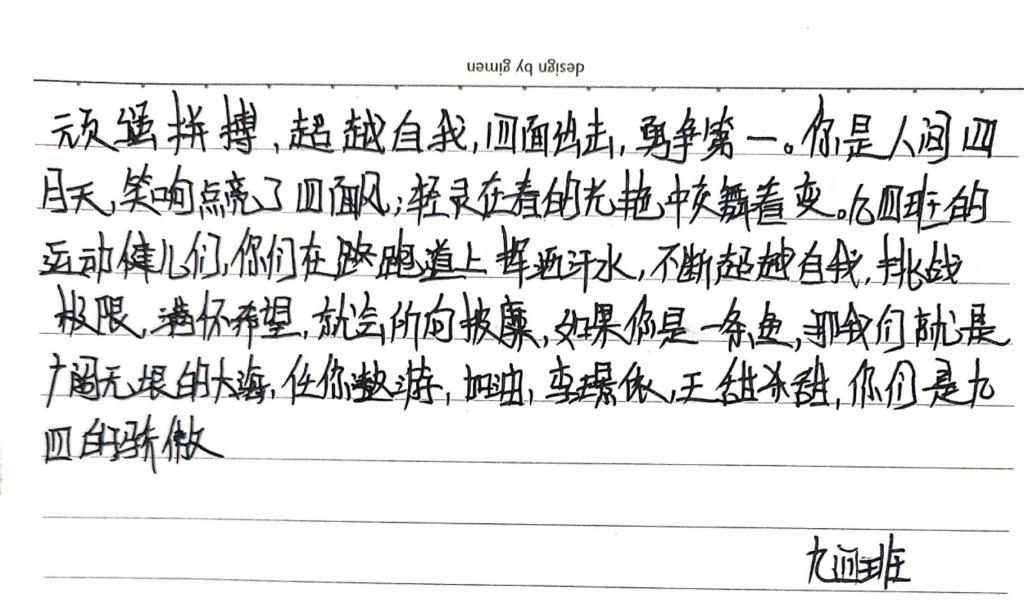 design by gimen
顽强拼搏,超越自我,四面出击,勇争第一。你是人间四
月天,笑响点亮了四面风;轻灵在春的光艳中交舞着变。九四班的
运动健儿们,你们在跑道上挥洒汗水,不断超越自我,挑战
极限,满怀希望,就会所向披靡,如果你是一条鱼,那我们就是
广阔无垠的大海,任你遨游,加油,李璟依,王甜甜,你们是九
四的骄傲
九四班